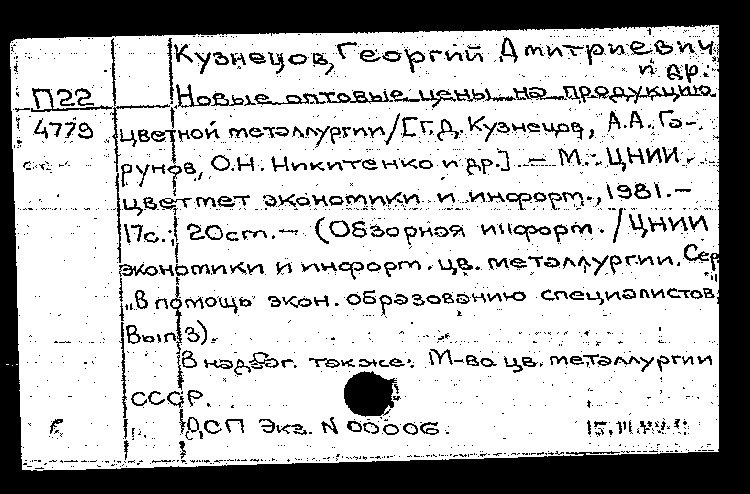 Кузнецов, Георгий Дмитриевич
и др.
П22 Новые оптовые цены на продукцию
4779 цветной металлургии/[Г.Д. Кузнецов, А.А. Га-
рунов, О.Н. Никитенко и др.] — М.: ЦНИИ
цветмет экономики и информ., 1981.—
17с.; 20см.— (Обзорная информ. / ЦНИИ
экономики и информ. цв. металлургии. Сер.
„В помощь экон. образованию специалистов"
Вып. 3).
В надзаг. также: М-ва цв. металлургии
СССР.
ДСП Экз. N 00006.